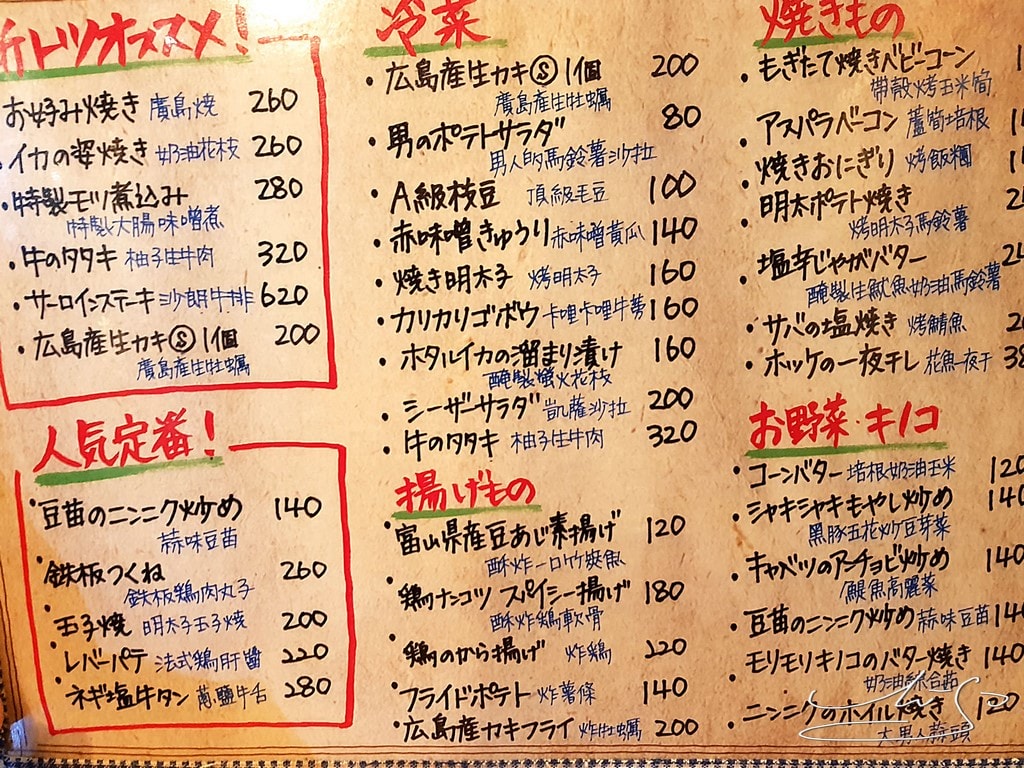 オススメ!
お好み焼き 廣島燒 260
イカの姿焼き 奶油花枝 260
特製モツ煮込み 280
特製大腸味噌煮
牛のタタキ 柚子生牛肉 320
サーロインステーキ 沙朗牛排 620
広島産生カキⓈ1個 200
廣島產生牡蠣
人気定番!
豆苗のニンニク炒め 140
蒜味豆苗
鉄板つくね 260
鉄板鶏肉丸子
玉子焼 明太子玉子燒 200
レバーパテ 法式鶏肝醬 220
ネギ塩牛タン 蔥鹽牛舌 280
冷菜
広島産生カキⓈ1個 200
廣島產生牡蠣
男のポテトサラダ 80
男人的馬鈴薯沙拉
A級枝豆 頂級毛豆 100
赤味噌きゅうり 赤味噌黃瓜 140
焼き明太子 烤明太子 160
カリカリゴボウ 卡哩卡哩牛蒡 160
ホタルイカの溜まり漬け 160
醃製螢火花枝
シーザーサラダ 凱薩沙拉 200
牛のタタキ 柚子生牛肉 320
揚げもの
富山県産豆あじ素揚げ 120
酥炸一口竹筴魚
鶏ナンコツ スパイシー揚げ 180
酥炸鶏軟骨
鶏のから揚げ 炸鶏 220
フライドポテト 炸薯條 140
広島産カキフライ 炸牡蠣 200
焼きもの
もぎたて焼きベビーコーン
帶殼烤玉米筍
アスパラベーコン 蘆筍培根
焼きおにぎり 烤飯糰
明太ポテト焼き
烤明太子馬鈴薯
塩辛じゃがバター
醃製生魷魚奶油馬鈴薯
サバの塩焼き 烤鯖魚
ホッケの一夜干し 花魚一夜干
お野菜・キノコ
コーンバター 培根奶油玉米 120
シャキシャキもやし炒め 140
黑豚五花炒豆芽菜
キャベツのアンチョビ炒め 140
鯷魚高麗菜
豆苗のニンニク炒め 蒜味豆苗 140
モリモリキノコのバター焼き 140
奶油綜合菇
ニンニクのホイル焼き 120
大男人蒜頭